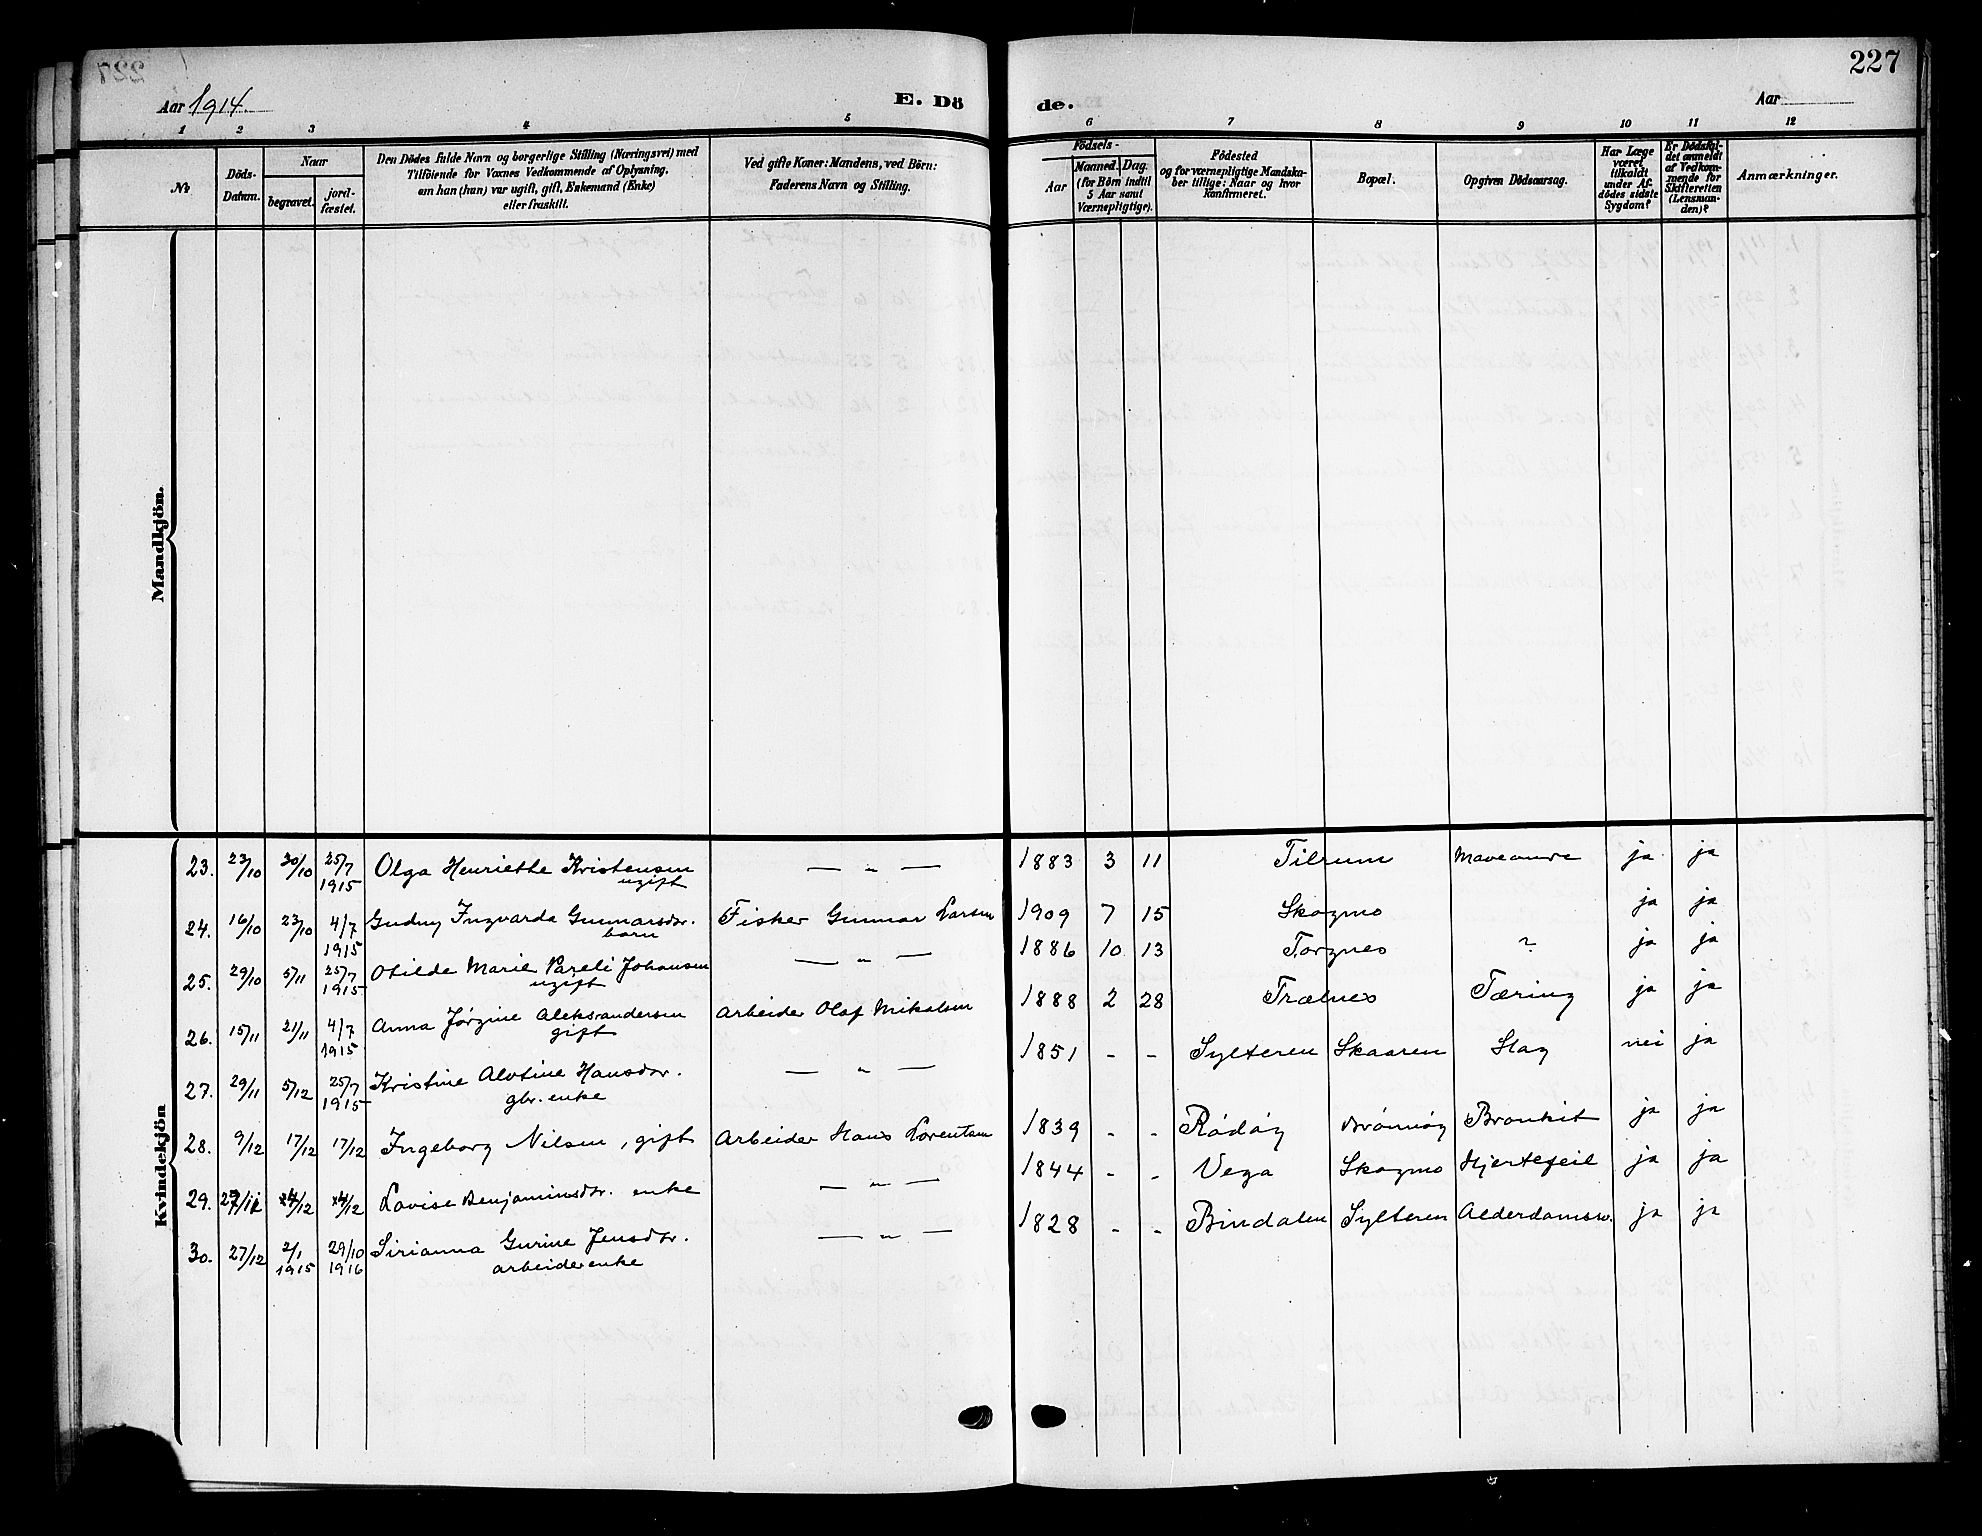 227
Aar 1914.
E. Dö
de.
Aar
1 2 3 4 5 6 7 8 9 10 11 12
№
Döds-
Datum.
Naar
begravet.
jord-
fæstet.
Den Dödes fulde Navn og borgerlige Stilling (Næringsvei) med
Tilföiende for Voxnes Vedkommende af Oplysning,
om han (hun) var ugift, gift, Enkemand (Enke)
eller fraskilt.
Ved gifte Koner: Mandens, ved Börn:
Faderens Navn og Stilling.
Födsels-
Aar
Maaned. Dag.
(for Börn indtil
5 Aar samt
Værnepligtige).
Födested
og for værnepligtige Mandska-
ber tillige: Naar og hvor
konfirmeret.
Bopæl.
Opgiven Dödsaarsag.
Har Læge
været
tilkaldt
under Af-
dödes sidste
Sygdom?
Er Dödsfal-
det anmeldt
af Vedkom-
mende for
Skifteretten
(Lensman-
den)?
Anmærkninger.
Mandkjön.
Kvindekjön
23. 23/10 30/10 25/7 1915 Olga Henriette Kristensen — „ — 1883 3 11 Tilrum ja ja
ugift
24. 16/10 23/10 4/7 1915 Gudny Ingvarda Gunnarsdtr. Fisker Gunnar Larsen 1909 7 15 Skogmo ja ja
barn
25. 29/10 5/11 25/7 1915 Otilde Marie Pareli Johansen — „ — 1886 10 13 Torgnes ? ja ja
ugift
26. 15/11 21/11 4/7 1915 Anna Jørgine Aleksandersen Arbeider Olaf Mikalsen 1888 2 28 Trælnes Tæring ja ja
gift
27. 29/11 5/12 25/7 1915 Kristine Alvtine Hansdtr. — „ — 1851 - - Sylteren Skaaren Slag nei ja
gbr. enke
28. 9/12 17/12 17/12 Ingeborg Nilsen, gift Arbeider Hans Lorentsen 1839 - - Rødøy Brønnøy Bronkit ja ja
29. 24/12 24/12 Lovise Benjaminsdtr. enke — „ — 1844 - - Vega Skogmo Hjertefeil ja ja
30. 27/12 2/1 1915 29/10 1916 Sirianna Gurine Jensdtr. — „ — 1828 - - Bindalen Sylteren Alderdomssv. ja ja
arbeiderenke